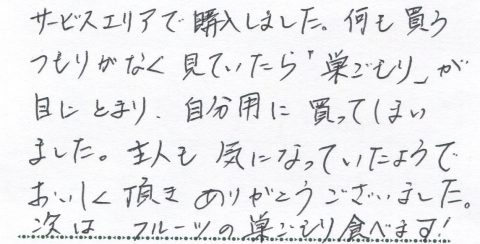 サービスエリアで購入しました。何も買う
つもりがなく見ていたら「巣ごもり」が
目にとまり、自分用に買ってしまい
ました。主人も気になっていたようで
おいしく頂きありがとうございました。
次は フルーツの巣ごもり食べます!